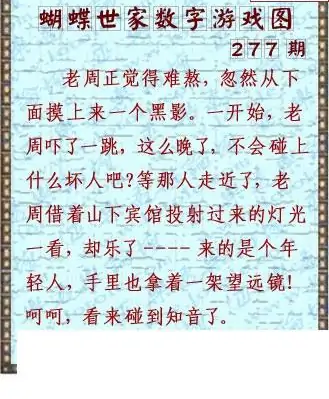 蝴蝶世家数字游戏图
277期
老周正觉得难熬，忽然从下
面摸上来一个黑影。一开始，老
周吓了一跳，这么晚了，不会碰上
什么坏人吧?等那人走近了，老
周借着山下宾馆投射过来的灯光
一看，却乐了----来的是个年
轻人，手里也拿着一架望远镜!
呵呵，看来碰到知音了.